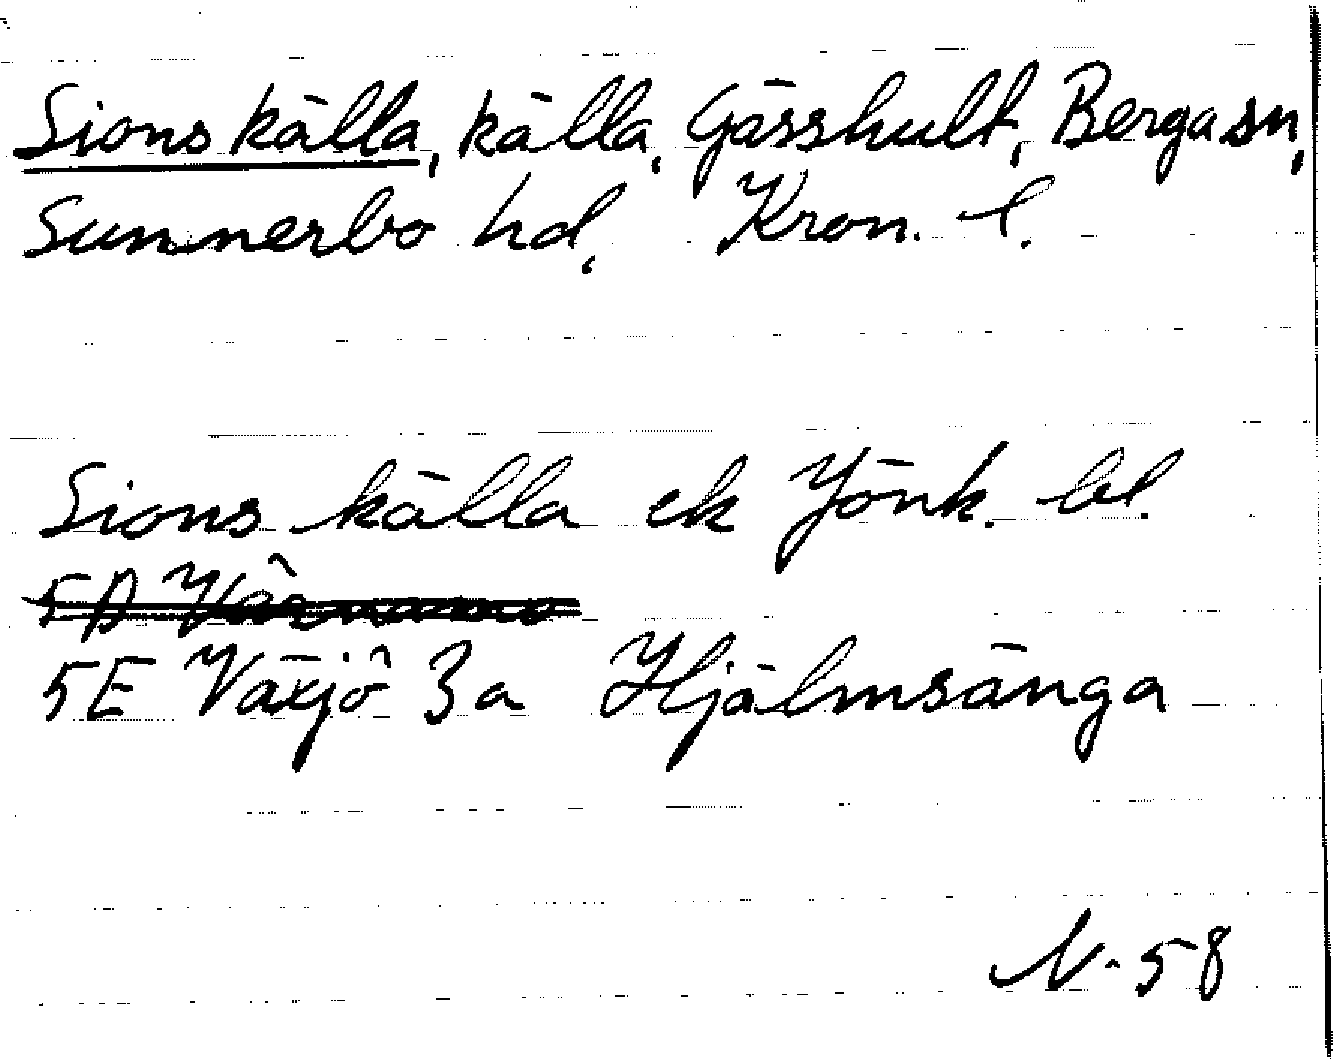 Sions källa, källa, Gässhult, Berga sn,
Sunnerbo hd, Kron. l.
Sions källa ek Jönk. bl.
5D Värnamo
5E Växjö 3a Hjälmsänga
N-58